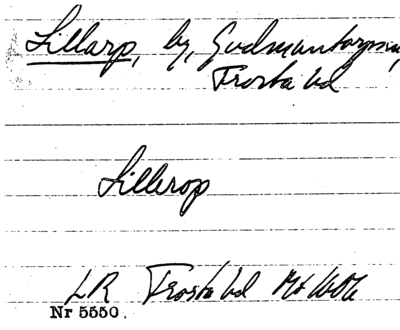 Lillarp, by, Gudmuntorps sn,
Frosta hd
Lillerop
LR Frosta hd
Nr 5550.